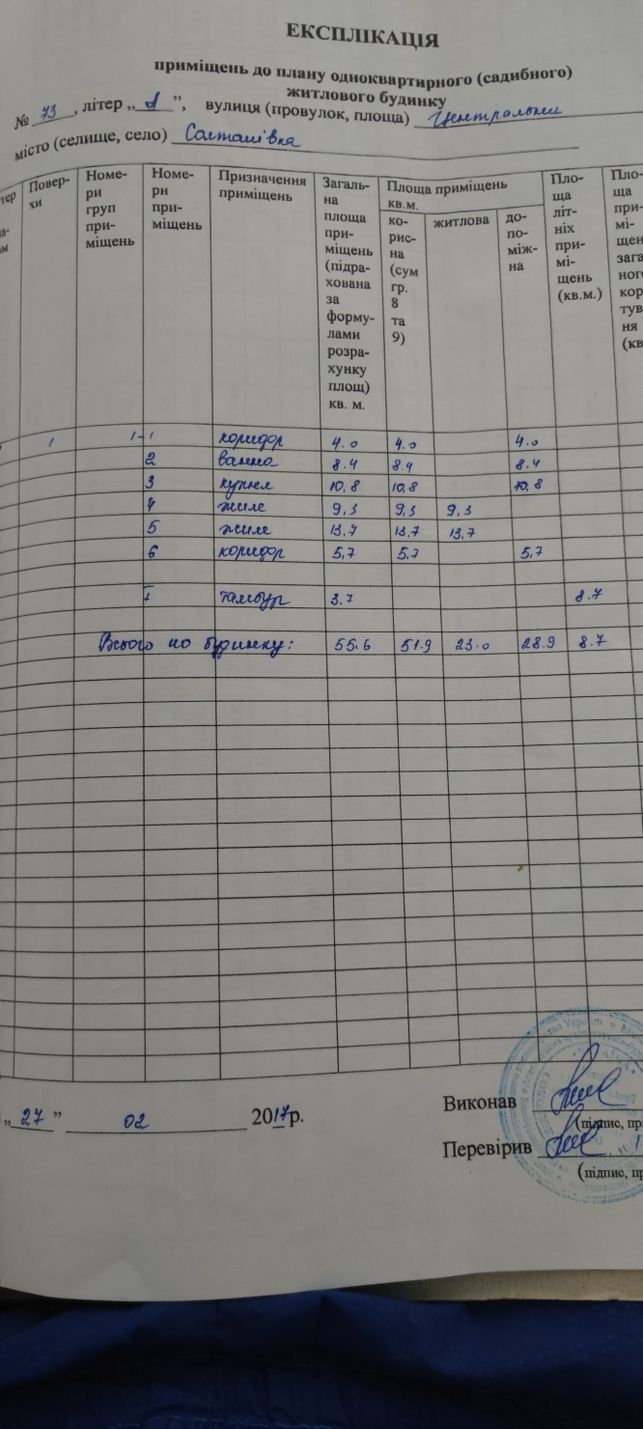 ЕКСПЛІКАЦІЯ
приміщень до плану одноквартирного (садибного)
житлового будинку
№ 73, літер „А”, вулиця (провулок, площа) Центральна
місто (селище, село) Салтанівка
Повер-хи Номе-ри груп при-міщень Номе-ри при-міщень Призначення приміщень Загаль-на площа при-міщень (підра-хована за форму-лами розра-хунку площ) кв. м. Площа приміщень кв.м. Пло-ща літ-ніх при-мі-щень (кв.м.) Пло-ща при-мі-щен зага ног кор тув ня (кв
ко-рис-на (сум гр. 8 та 9) житлова до-по-між-на
1 1-1 коридор 4.0 4.0 4.0
2 ванна 8.4 8.4 8.4
3 кухня 10,8 10,8 10,8
4 жиле 9,3 9,3 9,3
5 жиле 13,7 13,7 13,7
6 коридор 5,7 5,7 5,7
I тамбур 3.7 8.7
Всього по будинку: 55.6 51.9 23.0 28.9 8.7
„27” 02 2017р.
Виконав
(підпис, пр
Перевірив
(підпис, пр